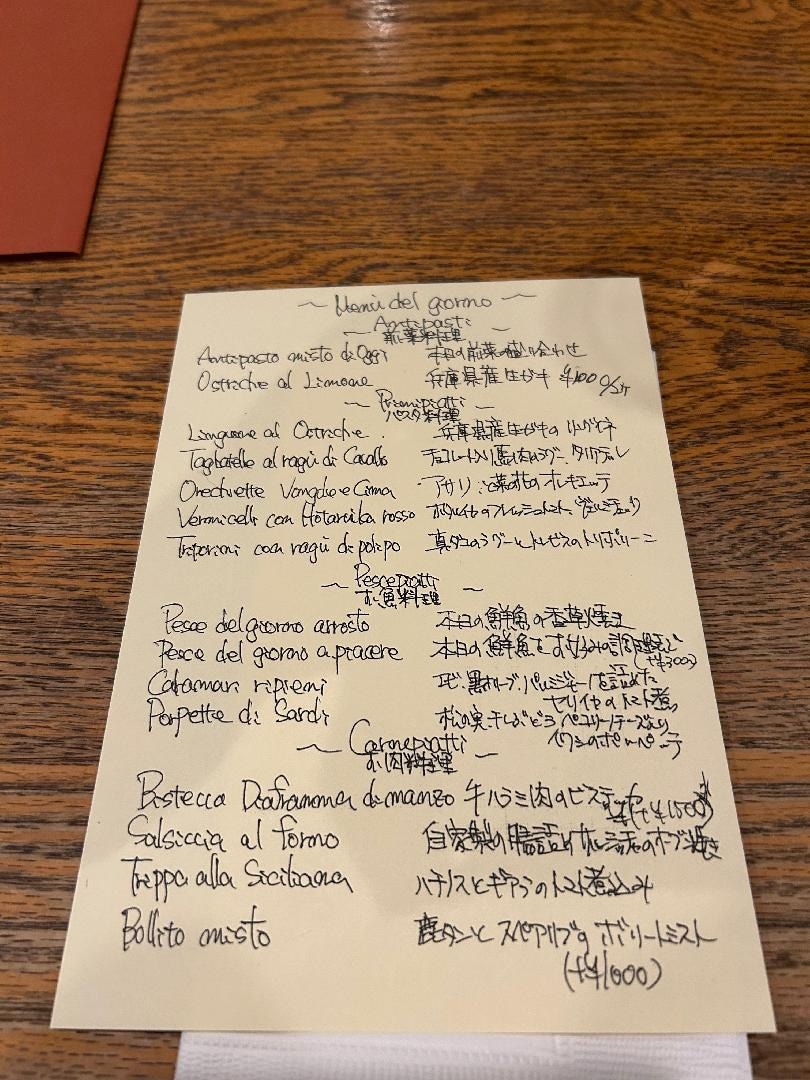 ~ Menù del giorno ~
~ Antipasti ~
前菜料理
Antipasto misto di Oggi 本日の前菜の盛り合わせ
Ostriche al Limone 兵庫県産生ガキ
~ Primipiatti ~
パスタ料理
Linguine al Ostriche. 兵庫県産生ガキのリングイネ
Tagliatelle al ragù di Cavallo チョコレート入り馬肉のラグー、タリアテレ
Orechiette Vongole e Cima アサリと菜の花のオレキエッテ
Vermicelli con Hotaruika rosso ホタルイカのフレッシュトマト
Tripolini con ragù di polipo 真ダコのラグーとトレビスのトリポリーニ
~ Pescepiatti ~
お魚料理
Pesce del giorno arrosto 本日の鮮魚の香草焼き
Pesce del giorno a piacere 本日の鮮魚をお好みの調理法で
(+¥300)
Calamari ripieni 黒オリーブ、パルミジャーノを詰めた
ヤリイカのトマト煮
Porpette di Sardi 松の実干しぶどうペコリーノチーズ入り
イワシのポルペッテ
~ Carnepiatti ~
お肉料理
Bistecca Diaframma di manzo 牛ハラミ肉のビステッカ
(+¥1500)
Salsiccia al forno 自家製の腸詰め のオーブン焼き
Trippa alla Siciliana ハチノスとギアラのトマト煮込み
Bollito misto 鹿タンとスペアリブのボリートミスト
(+¥1000)